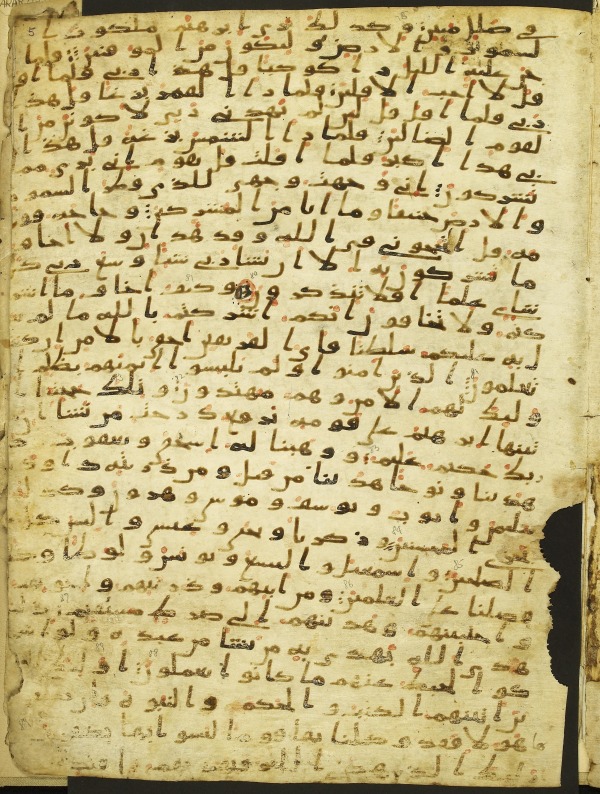 في ضلل مبين وكذلك نري ابرهيم ملكوت ا
لسموت والارض وليكون من الموقنين فلما
جن عليه الليل را كوكبا قال هذا ربي فلما افل
قل لا احب الافلين فلما را القمر بزغا قل هذا
ربي فلما افل قل لين لم يهدني ربي لاكونن من ا
لقوم الضالين فلما را الشمس بزغة قل هذا
ربي هذا اكبر فلما افلت قل يقوم اني بري مما
تشركون اني وجهت وجهي للذي فطر السموت
والارض حنيفا وما انا من المشركين وحاجه قو
مه قل اتحجوني في الله وقد هدان ولا اخاف
ما تشركون به الا ان يشا ربي شيا وسع ربي كل
شاي علما افلا تتذكرون وكيف اخاف ما اشر
كتم ولا تخافون انكم اشركتم بالله ما لم ينز
ل به عليكم سلطنا فاي الفريقين احق بالامن ان كنتم
تعلمون الذين امنوا ولم يلبسوا ايمنهم بظلم ا
وليك لهم الامن وهم مهتدون وتلك حجتنا ا
تينها ابرهيم على قومه نرفع درجت من نشا ان
ربك حكيم عليم ووهبنا له اسحق ويعقوب كلا
هدينا ونوحا هدينا من قبل ومن ذريته داود و
سليمن وايوب ويوسف وموسى وهرون وكذلك
نجزي المحسنين وزكريا ويحيى وعيسى والياس كل
من الصلحين واسمعيل واليسع ويونس ولوطا وكلا
فضلنا على العلمين ومن ابيهم وذريتهم واخونهم
واجتبينهم وهدينهم الى صرط مستقيم ذلك
هدى الله يهدي به من يشا من عبده ولو اشر
كوا لحبط عنهم ما كانوا يعملون اوليك ا
لذين اتينهم الكتب والحكم والنبوة فان يكفر
بها هولا فقد وكلنا بها قوما ليسوا بها بكفرين
اوليك الذين هدى الله فبهدهم اقتده